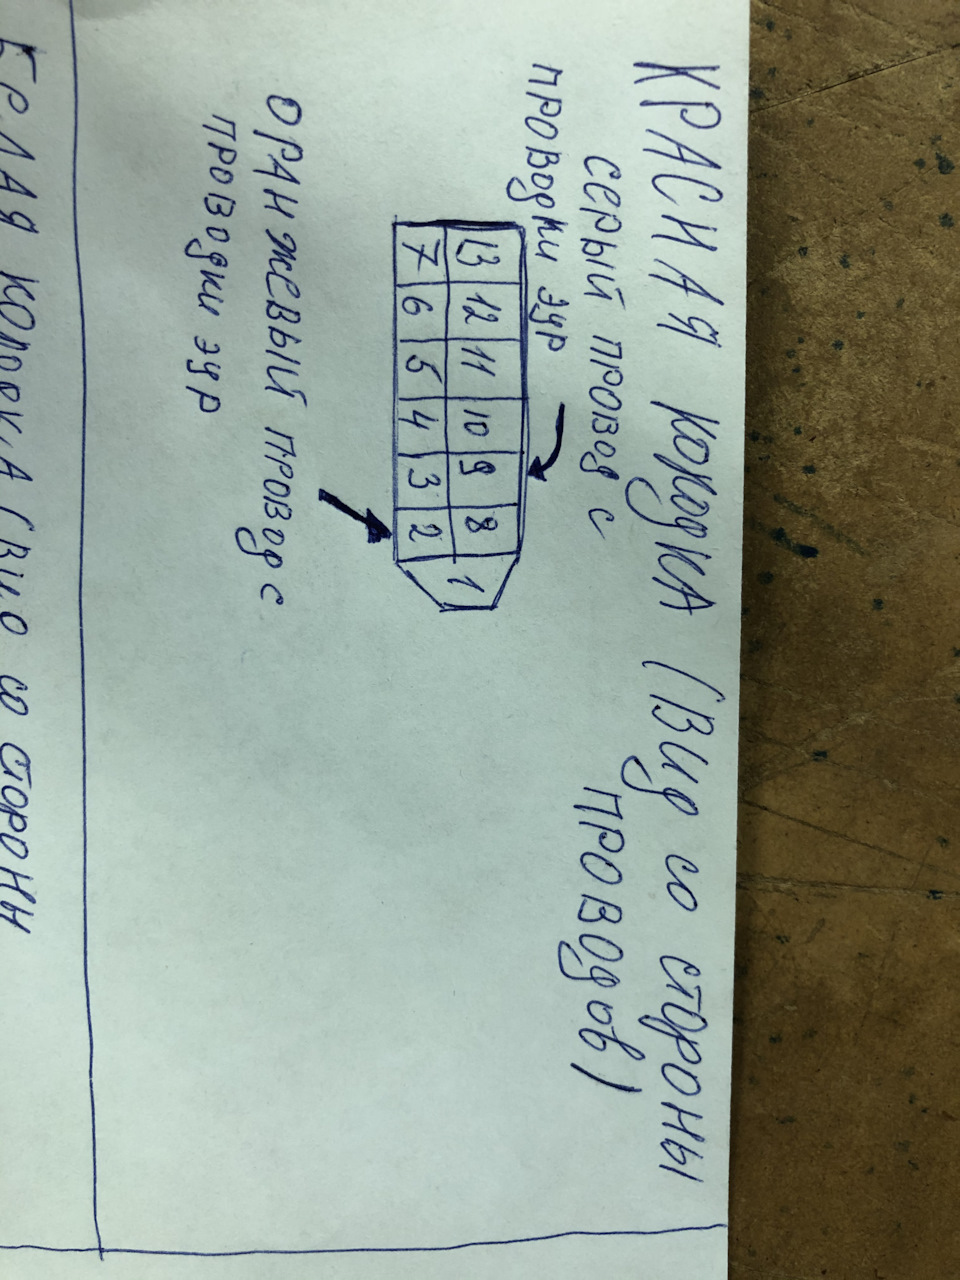 КРАСНАЯ КОЛОДКА (Вид со стороны
проводов)
серый провод с
проводки эур
13 12 11 10 9 8
1
7 6 5 4 3 2
оранжевый провод с
проводки эур
БЕЛАЯ КОЛОДКА (Вид со стороны